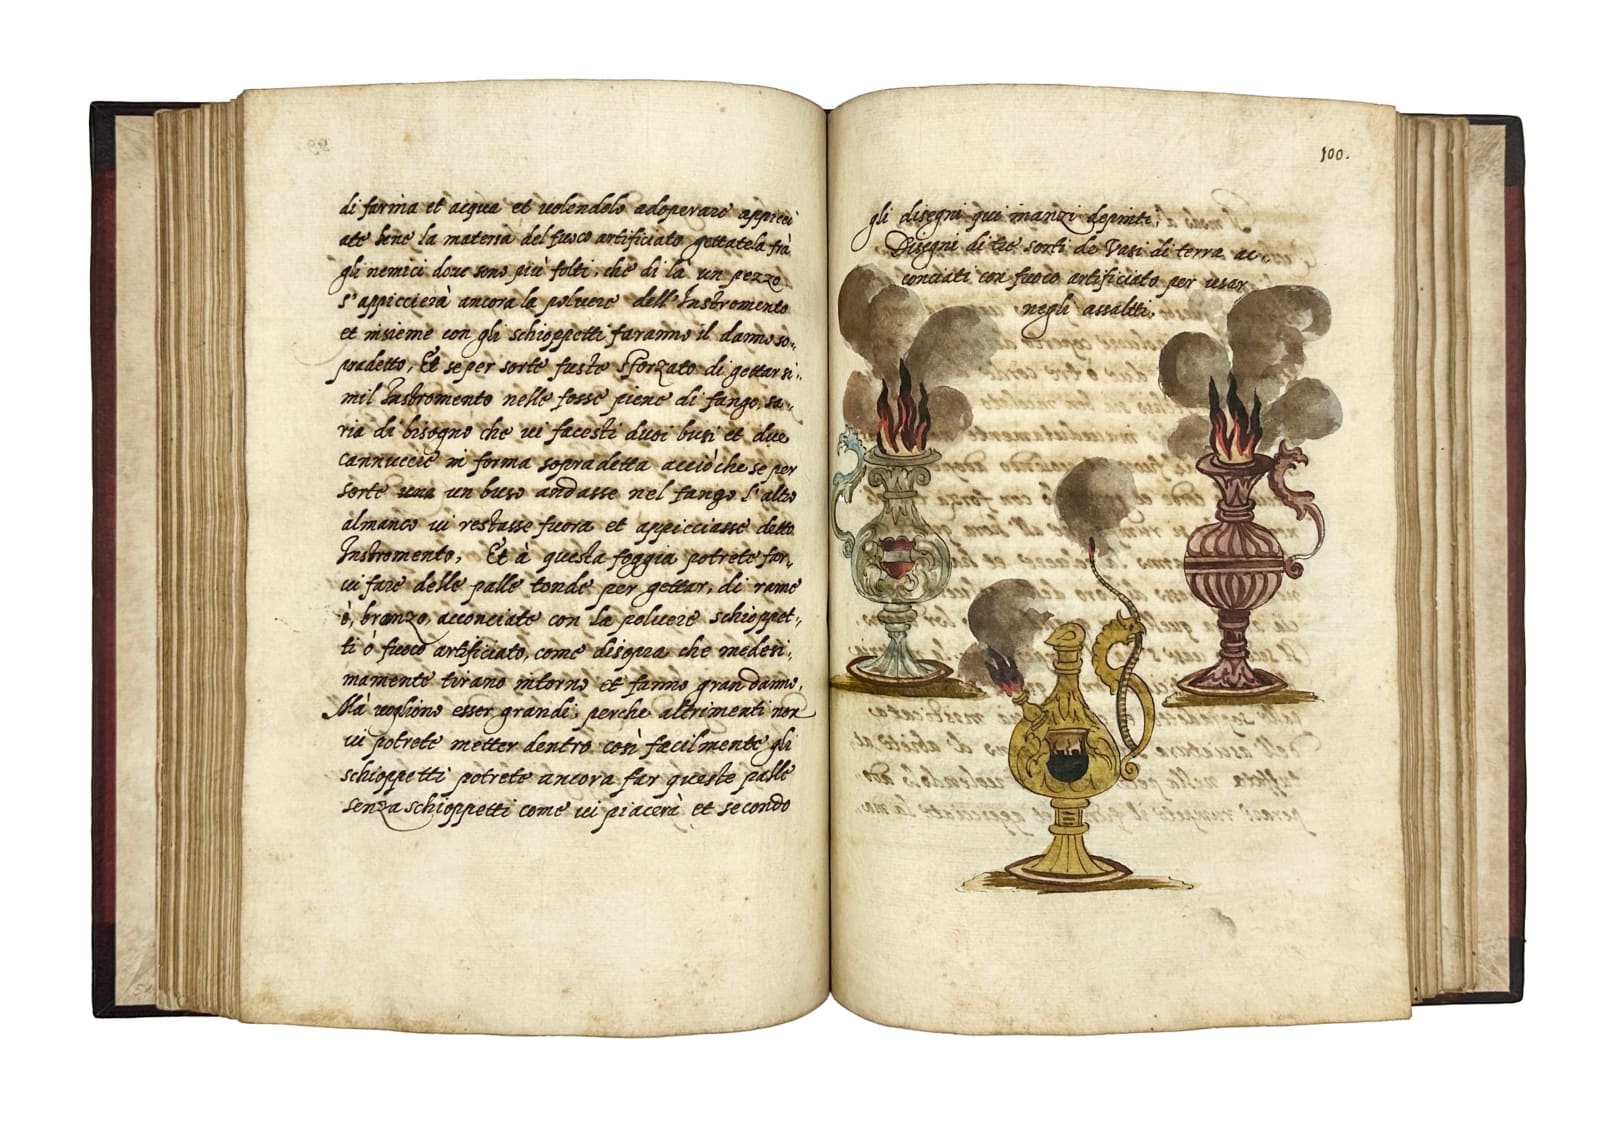 di farina et acqua et volendolo adoperare appicci
ate bene la materia del fuoco artificiato gettatela frà
gli nemici doue sono più folti, che di là un pezzo
s'appiccierà ancora la poluere dell'Instromento
et insieme con gli schioppetti faranno il danno so,,
pradetto, Et se per sorte fuste sforzato di gettar si,,
mil Instromento nelle fosse piene di fango, sa,,
ria di bisogno che ui facesti duoi busi et due
cannuccie in forma sopradetta acciò che se per
sorte un buso andasse nel fango l'altro
almanco ui restasse fuora et appicciasse detto
Instromento, Et à questa foggia potrete far,,
ui fare delle palle tonde per gettar, di rame
ò, bronzo, acconciate con la poluere schioppet,,
ti ò fuoco artificiato, come disopra che medesi,,
mamente tirano intorno et fanno gran danno,
Mà uogliono esser grandi, perche altrimenti non
ui potrete metter dentro così facilmente gli
schioppetti potrete ancora far queste palle
senza schioppetti come ui piacerà et secondo
100.
gli disegni qui inanzi depinti,
Disegni di tre sorti de Vasi di terra ac,,
conciati con fuoco artificiato per usar
negli assalti,